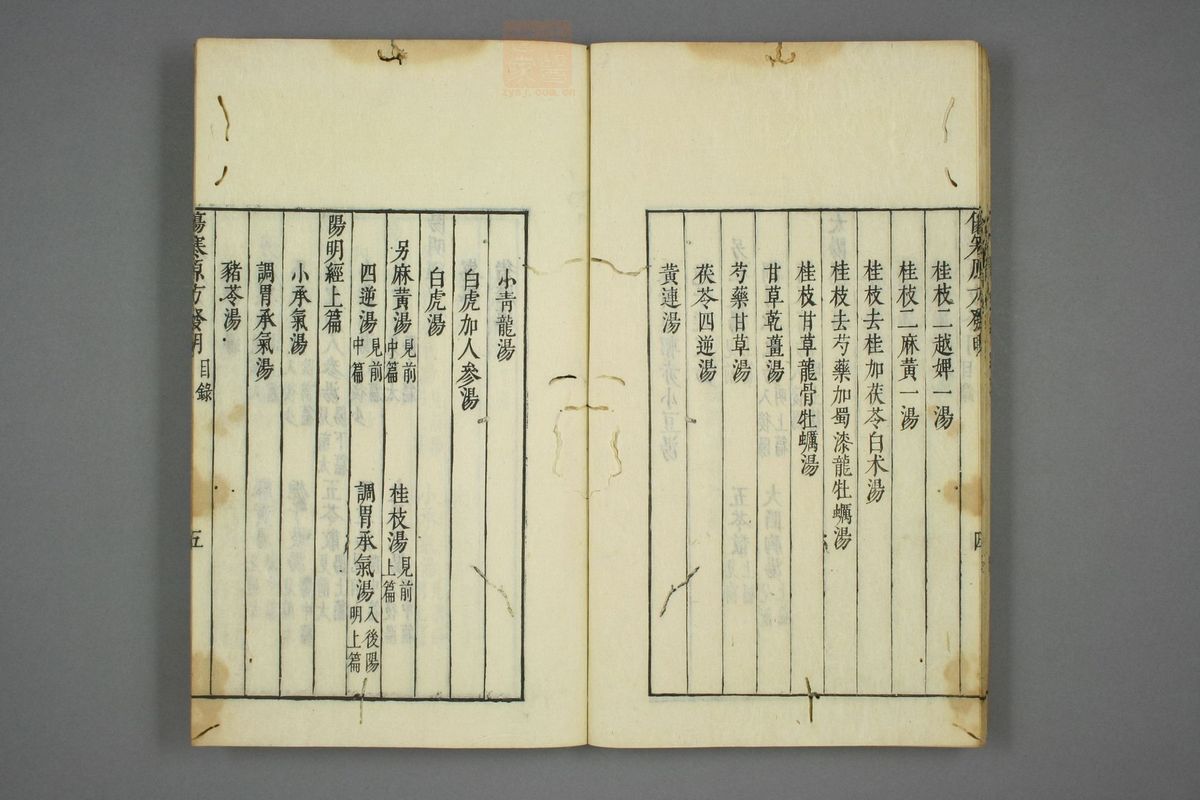 桂枝二越婢一湯
桂枝二麻黃一湯
桂枝去桂加茯苓白术湯
桂枝去芍藥加蜀漆龍牡蠣湯
桂枝甘草龍骨牡蠣湯
甘草乾薑湯
芍藥甘草湯
茯苓四逆湯
黃連湯
小青龍湯
白虎加人參湯
白虎湯
另麻黃湯見前中篇 桂枝湯見前上篇
四逆湯見前中篇 調胃承氣湯入後陽明上篇
陽明經上篇
小承氣湯
調胃承氣湯
豬苓湯
傷寒原方發明 目錄 五
zysj.com.cn